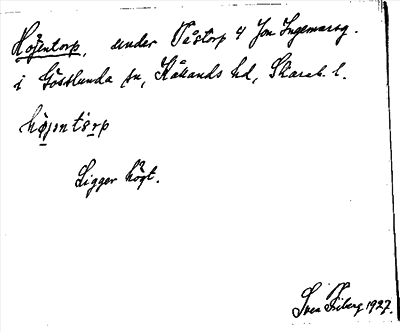 Höjentorp, under Västorp 4 Jon Ingemarsg.
i Götlunda sn, Kåkinds hd, Skarab. l.
höjentorp
Ligger högt.
Sven Friberg 1927.